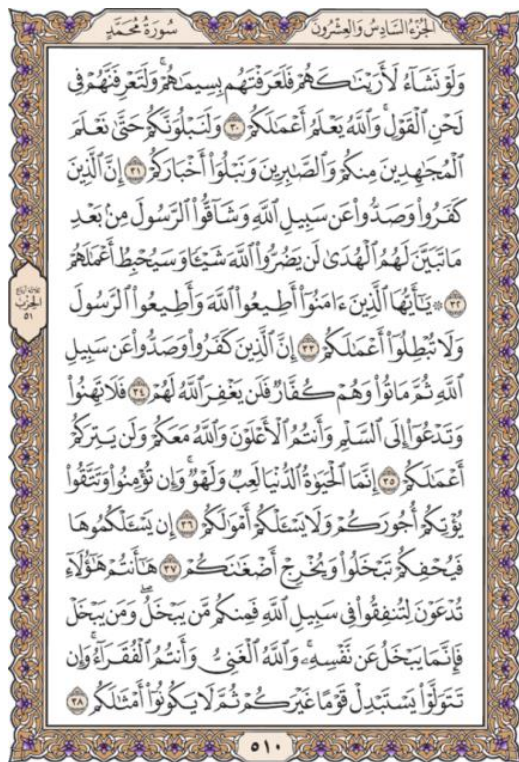 الجُزْءُ السَّادِسُ وَالعِشْرُونَ
سُورَةُ مُحَمَّدٍ
وَلَوْ نَشَآءُ لَأَرَيْنَٰكَهُمْ فَلَعَرَفْتَهُم بِسِيمَٰهُمْۚ وَلَتَعْرِفَنَّهُمْ فِى
لَحْنِ ٱلْقَوْلِۚ وَٱللَّهُ يَعْلَمُ أَعْمَٰلَكُمْ ٣٠ وَلَنَبْلُوَنَّكُمْ حَتَّىٰ نَعْلَمَ
ٱلْمُجَٰهِدِينَ مِنكُمْ وَٱلصَّٰبِرِينَ وَنَبْلُوَا۟ أَخْبَارَكُمْ ٣١ إِنَّ ٱلَّذِينَ
كَفَرُوا۟ وَصَدُّوا۟ عَن سَبِيلِ ٱللَّهِ وَشَآقُّوا۟ ٱلرَّسُولَ مِنۢ بَعْدِ
مَا تَبَيَّنَ لَهُمُ ٱلْهُدَىٰ لَن يَضُرُّوا۟ ٱللَّهَ شَيْـًٔا وَسَيُحْبِطُ أَعْمَٰلَهُمْ
٣٢ ۞ يَٰٓأَيُّهَا ٱلَّذِينَ ءَامَنُوٓا۟ أَطِيعُوا۟ ٱللَّهَ وَأَطِيعُوا۟ ٱلرَّسُولَ
وَلَا تُبْطِلُوٓا۟ أَعْمَٰلَكُمْ ٣٣ إِنَّ ٱلَّذِينَ كَفَرُوا۟ وَصَدُّوا۟ عَن سَبِيلِ
ٱللَّهِ ثُمَّ مَاتُوا۟ وَهُمْ كُفَّارٌ فَلَن يَغْفِرَ ٱللَّهُ لَهُمْ ٣٤ فَلَا تَهِنُوا۟
وَتَدْعُوٓا۟ إِلَى ٱلسَّلْمِ وَأَنتُمُ ٱلْأَعْلَوْنَ وَٱللَّهُ مَعَكُمْ وَلَن يَتِرَكُمْ
أَعْمَٰلَكُمْ ٣٥ إِنَّمَا ٱلْحَيَوٰةُ ٱلدُّنْيَا لَعِبٌ وَلَهْوٌۚ وَإِن تُؤْمِنُوا۟ وَتَتَّقُوا۟
يُؤْتِكُمْ أُجُورَكُمْ وَلَا يَسْـَٔلْكُمْ أَمْوَٰلَكُمْ ٣٦ إِن يَسْـَٔلْكُمُوهَا
فَيُحْفِكُمْ تَبْخَلُوا۟ وَيُخْرِجْ أَضْغَٰنَكُمْ ٣٧ هَٰٓأَنتُمْ هَٰٓؤُلَآءِ
تُدْعَوْنَ لِتُنفِقُوا۟ فِى سَبِيلِ ٱللَّهِ فَمِنكُم مَّن يَبْخَلُۖ وَمَن يَبْخَلْ
فَإِنَّمَا يَبْخَلُ عَن نَّفْسِهِۦۚ وَٱللَّهُ ٱلْغَنِىُّ وَأَنتُمُ ٱلْفُقَرَآءُۚ وَإِن
تَتَوَلَّوْا۟ يَسْتَبْدِلْ قَوْمًا غَيْرَكُمْ ثُمَّ لَا يَكُونُوٓا۟ أَمْثَٰلَكُم ٣٨
الحزب
٥١
٥١٠